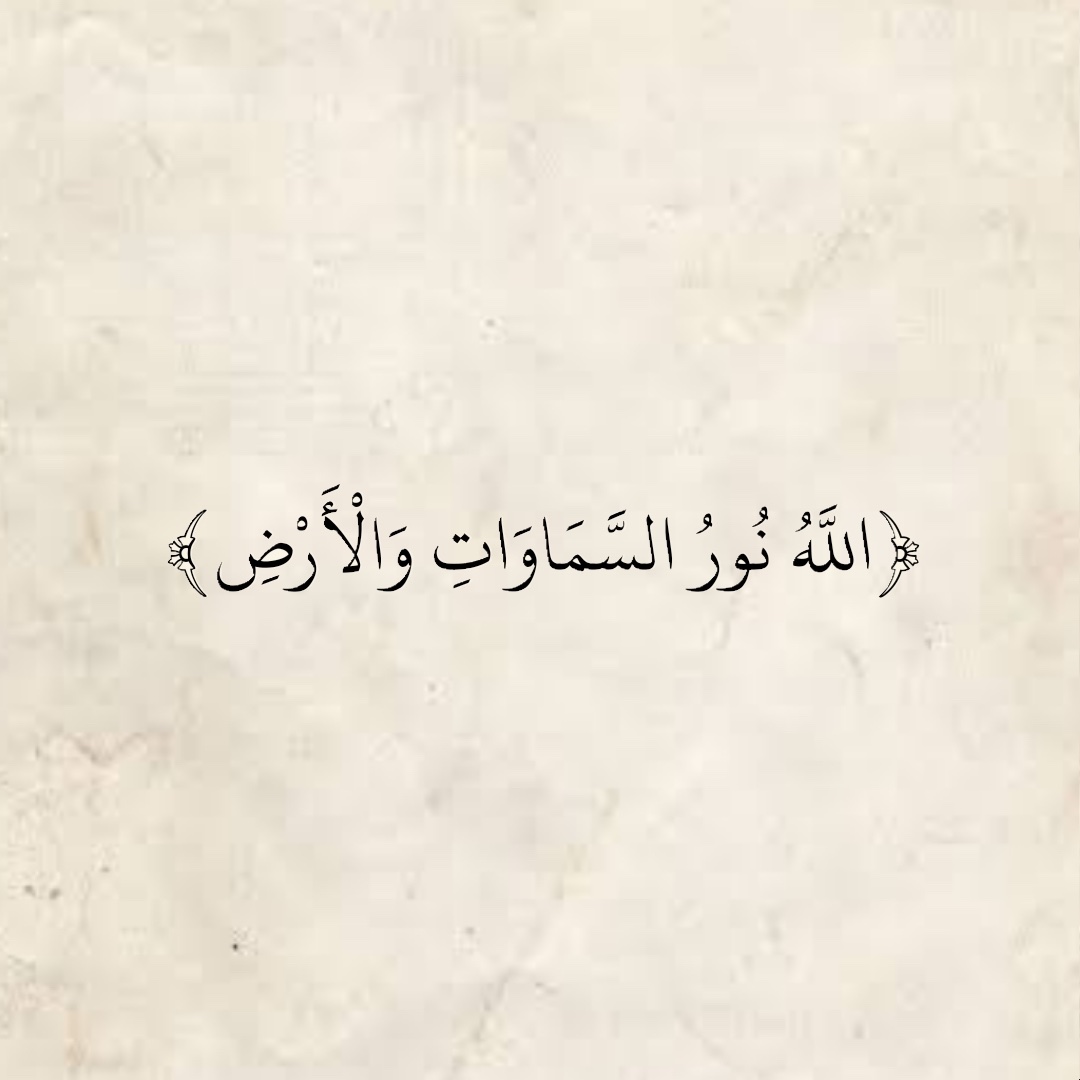 ﴿اللَّهُ نُورُ السَّمَاوَاتِ وَالْأَرْضِ﴾